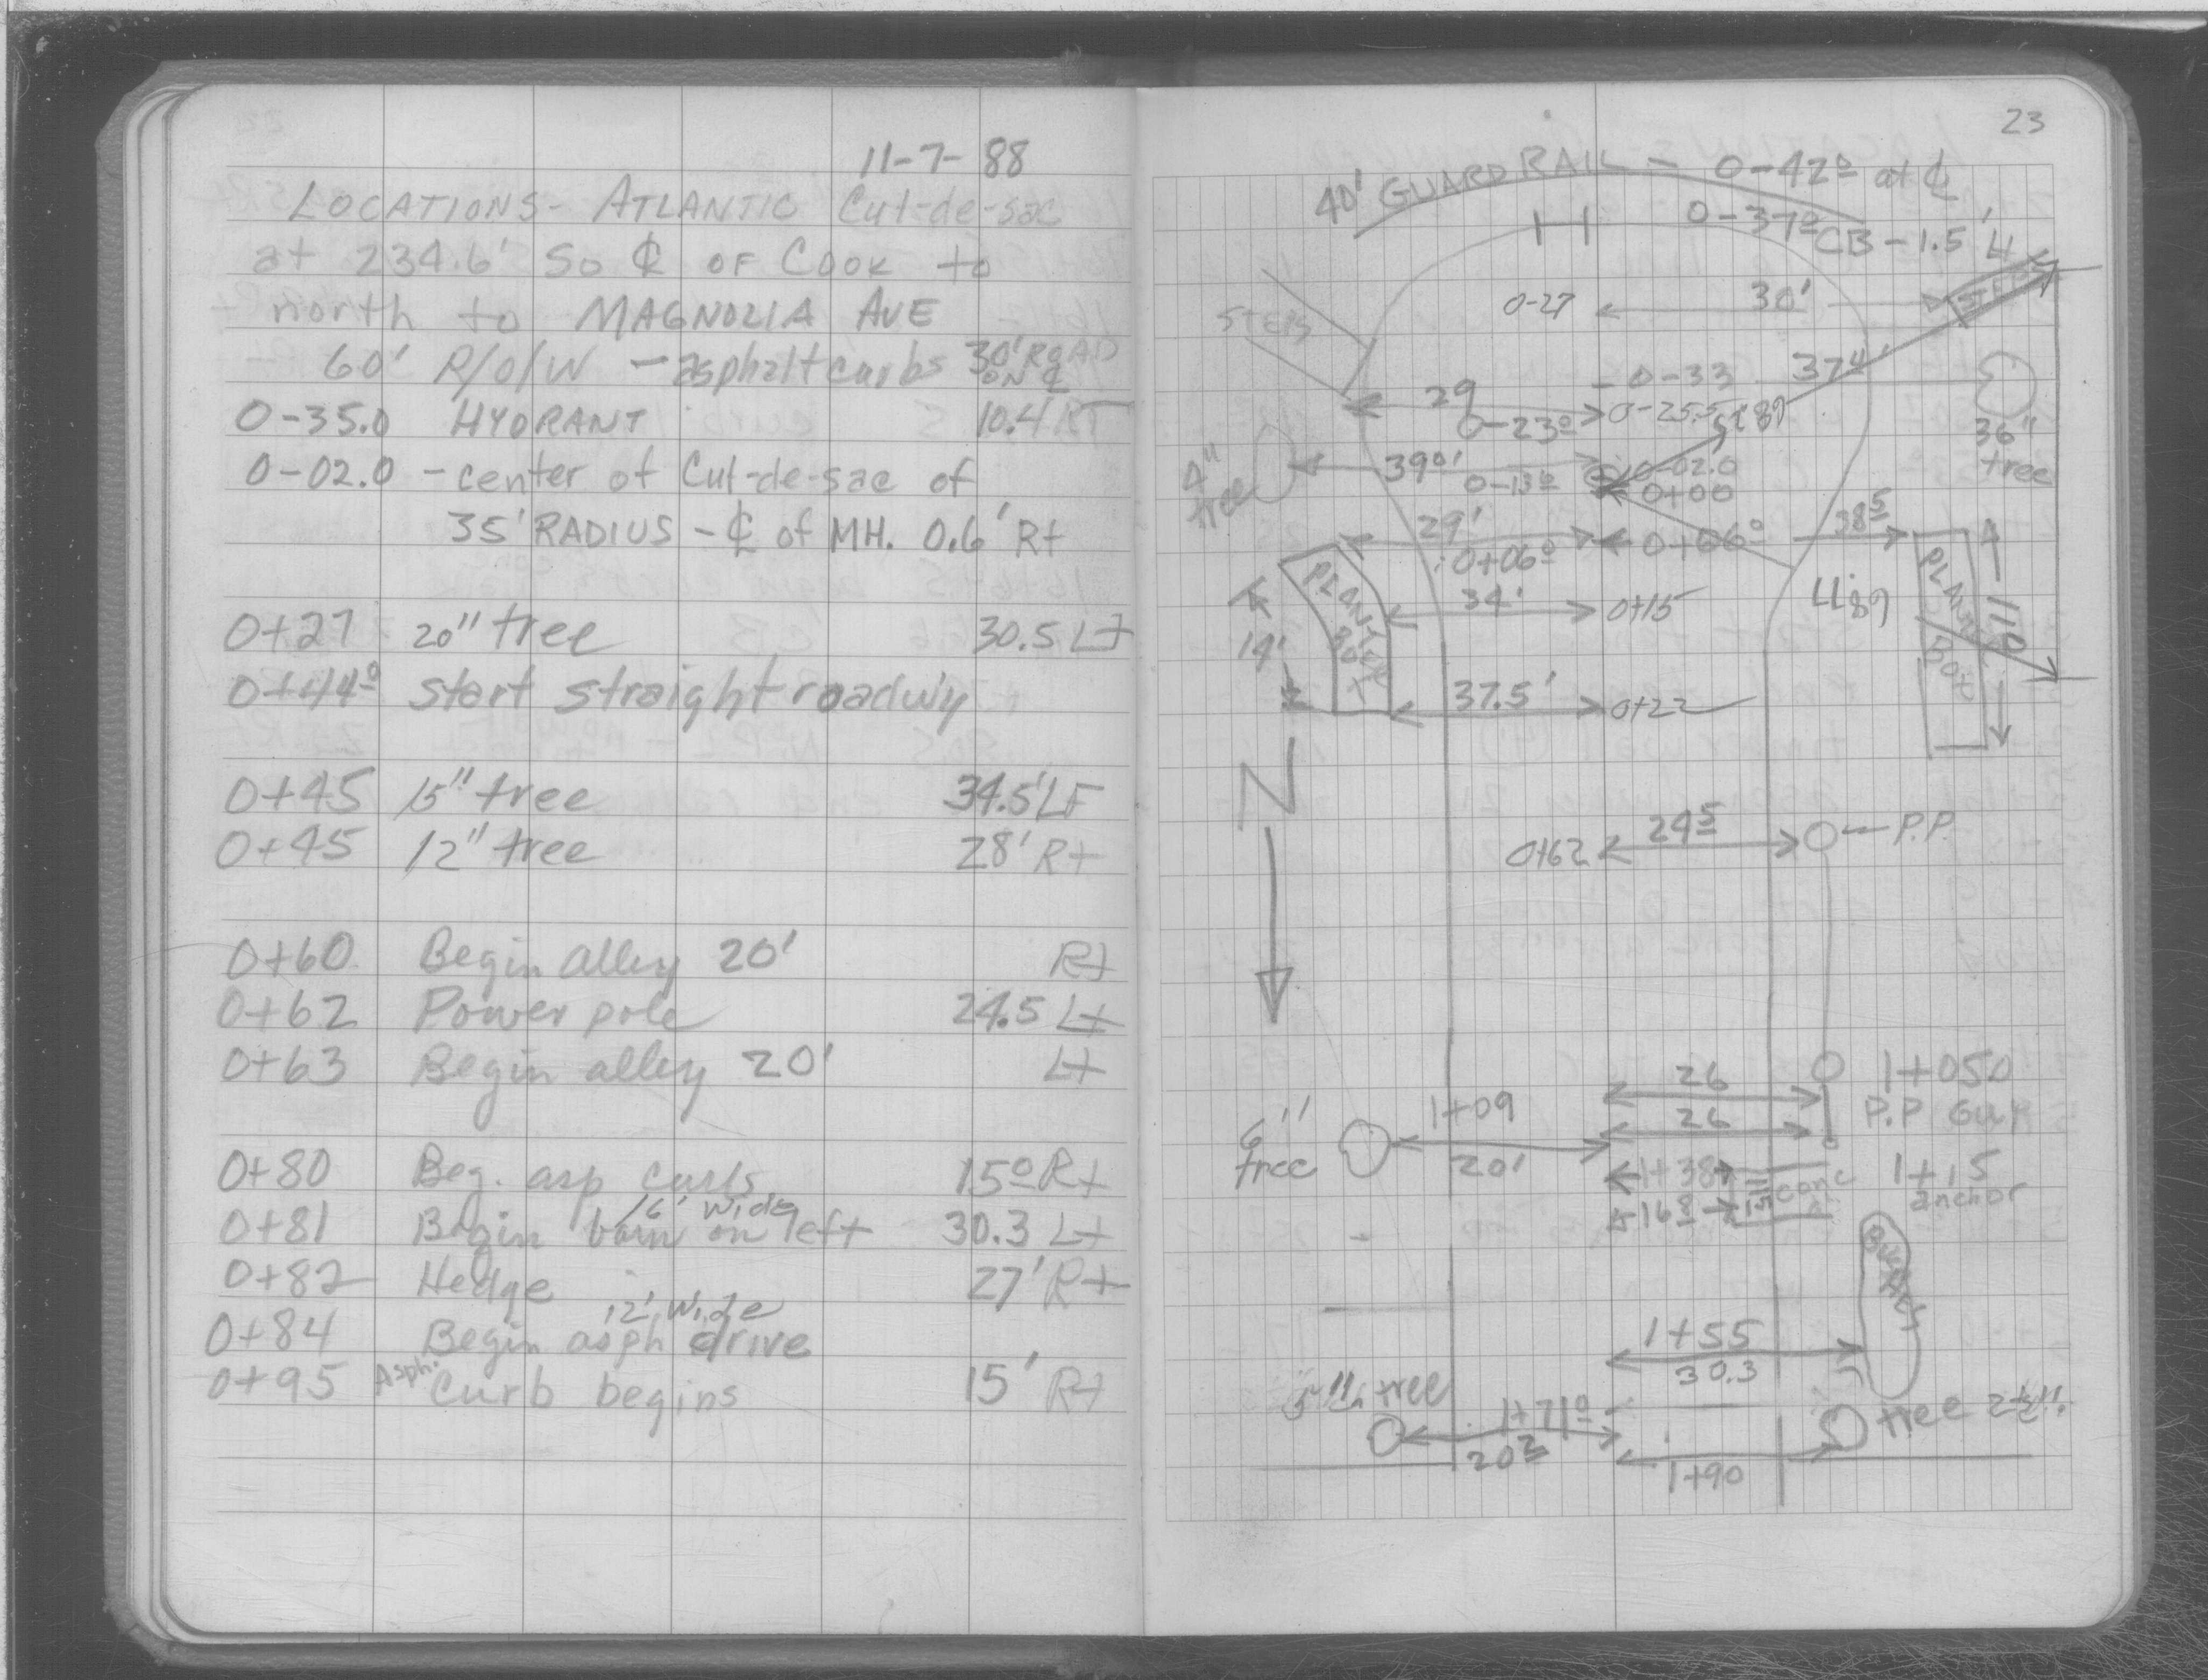 11-7-88
LOCATIONS- ATLANTIC Cut-de-sac
at 234.6' So ℄ OF COOK to
north to MAGNOLIA AVE
60' R/O/W - asphalt curbs 30' ROAD ON ℄
0-35.0 HYDRANT 10.4 RT
0-02.0 - center of Cut-de-sac of
35' RADIUS - ℄ of MH. 0.6' Rt
0+27 20" tree 30.5 Lt
0+44º start straight roadwy
0+45 15" tree 34.5' LF
0+45 12" tree 28' Rt
0+60 Begin alley 20' Rt
0+62 Power pole 24.5 Lt
0+63 Begin alley 20' Lt
0+80 Beg. asp curb 15º Rt
16' wide
0+81 Begin barn on left 30.3 Lt
0+82 Hedge 27' Rt
12' wide
0+84 Begin asph drive
0+95 Asph. Curb begins 15' Rt
23
40' GUARD RAIL - 0-42º at ℄
0-37º
CB - 1.5' Lt
0-27 30'
STEPS
0-33
37⁴'
29
0-23º 0-25.5
36" tree
4" tree
39º' 0-13º
0-02.0
0+00
29' 0+06º
0+06º 38⁵
PLANTER BOX
34' 0+15
14'
PLANT BOX
110
37.5' 0+22
N
0+62 24⁵ P.P.
26 1+050
P.P Guy
26
6" tree 1+09
20'
1+38 conc
16⁸
1+15 anchor
BUSHES
1+55
30.3
tree
1+71º
20²
tree 2½".
1+90